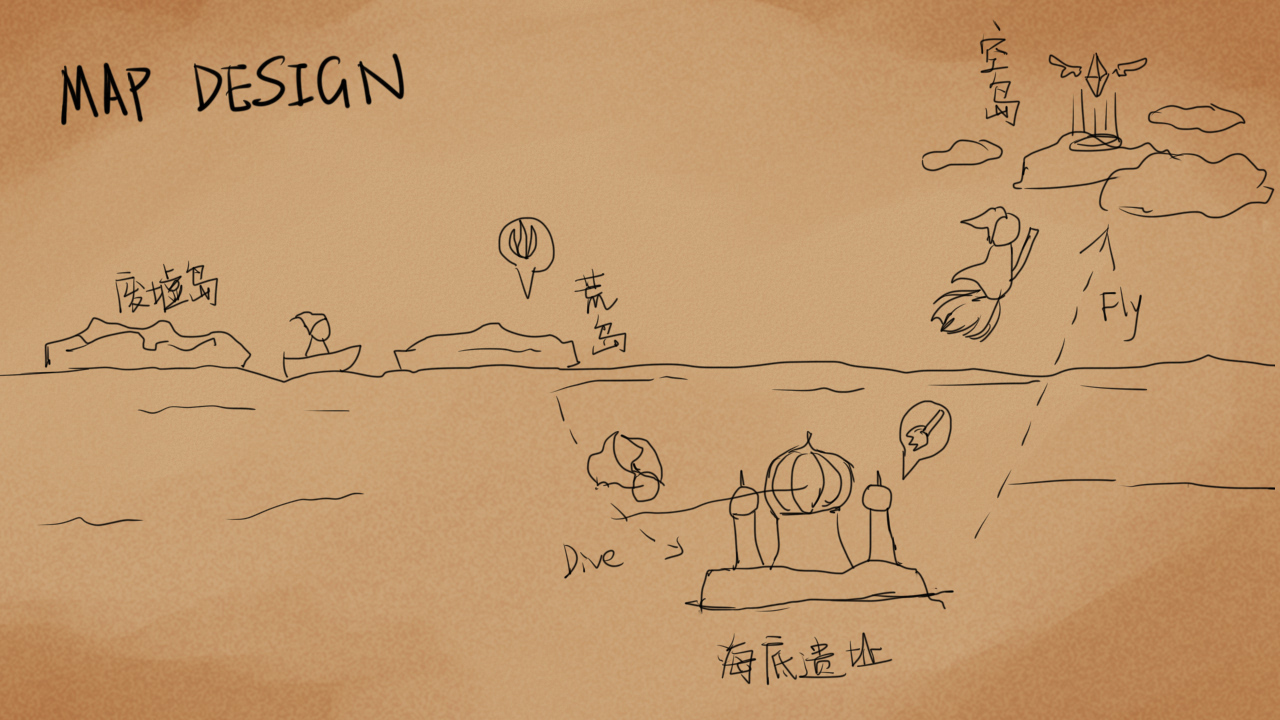 MAP DESIGN
空岛
废墟岛
荒岛
Fly
Dive
海底遗址